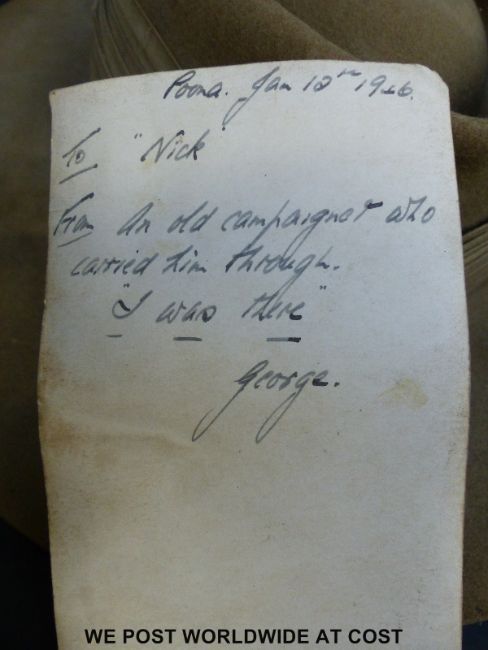 Poona. Jan 12th 1946.
To "Nick"
From An old campaigner who
carried him through.
"I was there"
George.
WE POST WORLDWIDE AT COST